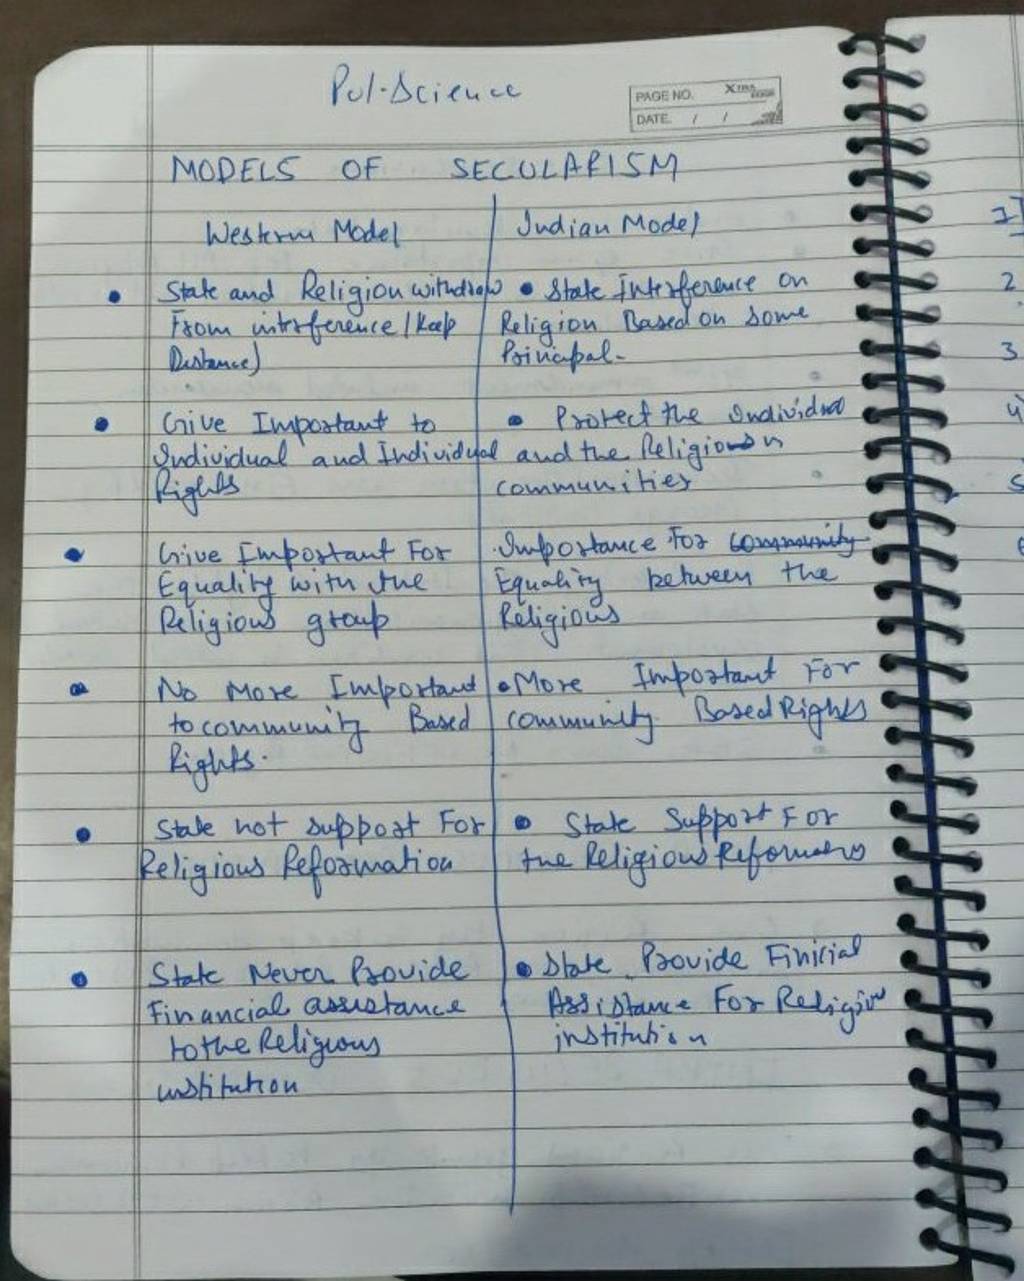 Pol-Science
PAGE NO.
DATE / /
MODELS OF SECULARISM
Western Model
State and Religion withdraw
From interference/(Keep
Distance)
Give Important to
Individual and Individual
Rights
Give Important For
Equality with the
Religious group
No More Important
to community Based
Rights.
State not support For
Religious Reformation
State Never Provide
Financial assistance
to the Religious
institution
Indian Model
State Interference on
Religion Based on some
Principal-
Protect the individual
and the Religious
communities
Importance For community
Equality between the
Religious
More Important For
community Based Rights
State Support For
the Religious Reformers
State Provide Finicial
Assistance For Religiou
institution
1]
2
3
4
5